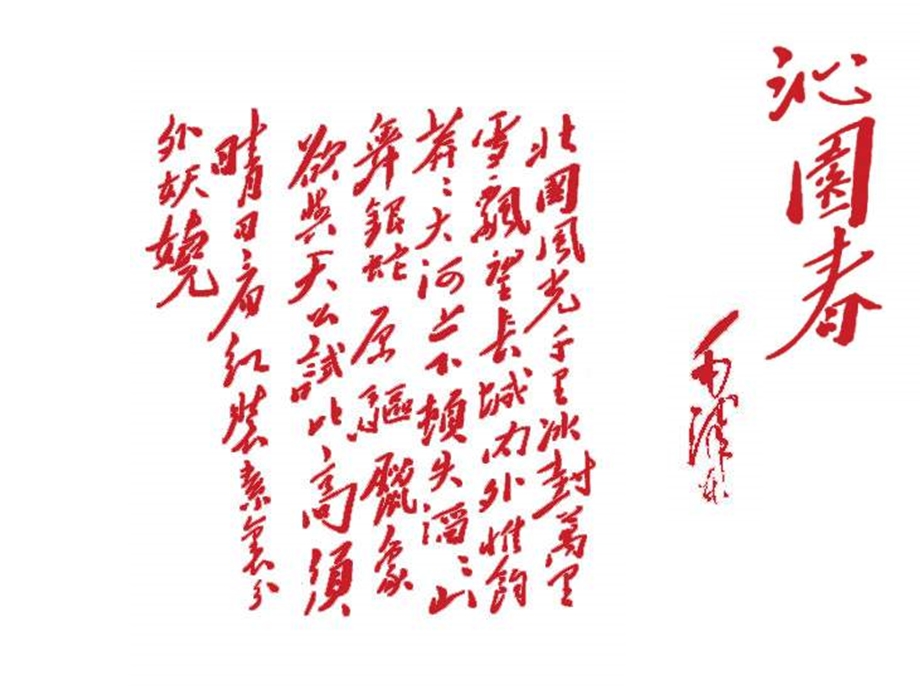 沁園春
毛澤東
北國風光千里冰封萬里
雪飄望長城内外惟餘
莽〻大河上下頓失滔〻山
舞銀蛇原驅臘象
欲與天公試比高須
晴日看紅裝素裹分
外妖嬈